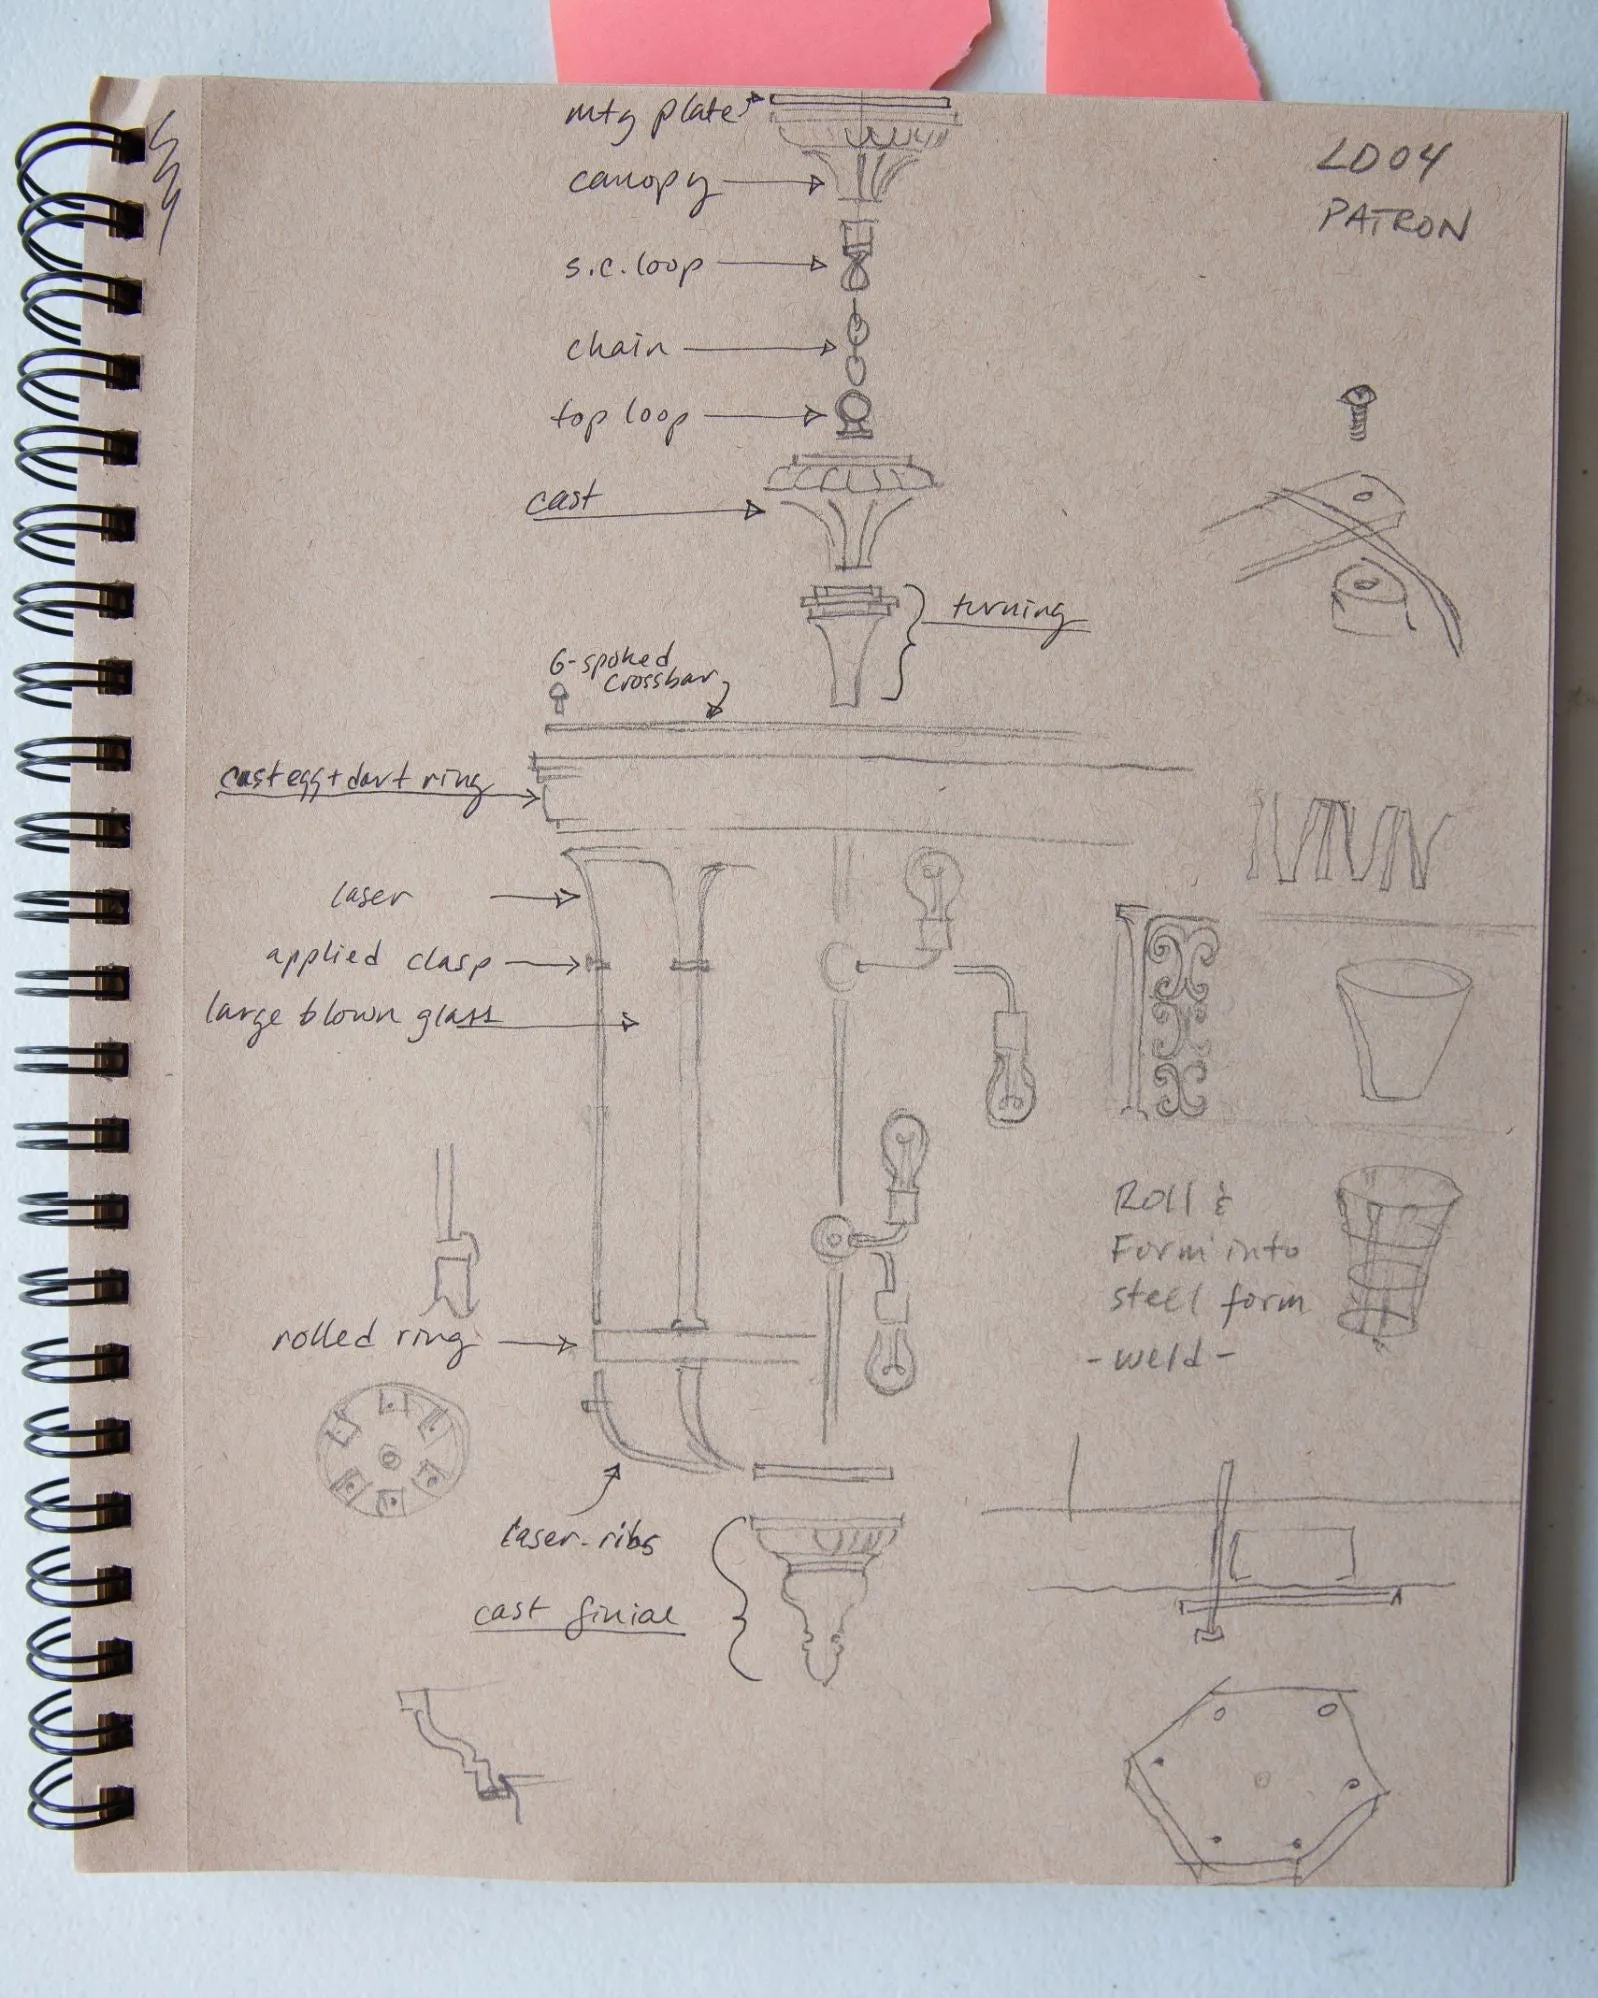 mtg plate
LD04
PATRON
canopy
s.c. loop
chain
top loop
cast
turning
6-spoked
crossbar
cast egg + dart ring
laser
applied clasp
large blown glass
Roll &
Form into
steel form
- weld -
rolled ring
laser-ribs
cast finial